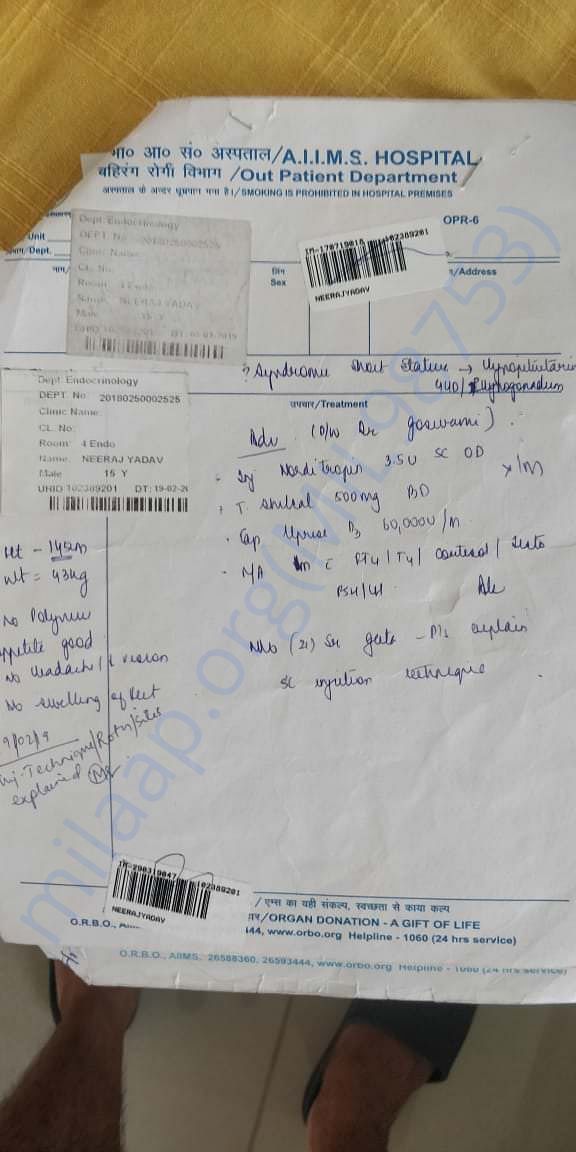 भा० आ० सं० अस्पताल/A.I.I.M.S. HOSPITAL
बहिरंग रोगी विभाग /Out Patient Department
अस्पताल के अन्दर धूम्रपान मना है।/SMOKING IS PROHIBITED IN HOSPITAL PREMISES
OPR-6
Unit
/Dept.
Dept. Endocrinology
DEPT. No. 20180250002525
Clinic Name
CL. No.
Room 4 Endo
Name NEERAJ YADAV
Male 15 Y
नाम/
लिंग
Sex
NEERAJYADAV
/Address
? Syndromic short stature → Hypopituitarism
उपचार/Treatment
Dept. Endocrinology
DEPT. No. 20180250002525
Clinic Name:
CL. No:
Room: 4 Endo
Name: NEERAJ YADAV
Male 15 Y
UHID 102389201 DT: 19-02-20
Adv (D/W Dr Goswami)
Inj Norditropin 3.5U SC OD
T. Shelcal 500mg BD
Cap Uprise D3 60,000U/M
FT4/T4/ Cortisol/ Testo
ht - 145cm
wt = 43kg
No Polyuria
appetite good
No headache/ vision
No swelling of feet
N/o (21) Sr Geeta - Pls explain
SC injection technique
Inj. Technique/Rotn/sites
explained
NEERAJYADAV
/ एम्स का यही संकल्प, स्वच्छता से काया कल्प
/ORGAN DONATION - A GIFT OF LIFE
O.R.B.O.,
444, www.orbo.org Helpline - 1060 (24 hrs service)
O.R.B.O., AIIMS, 26588360, 26593444, www.orbo.org Helpline - 1060 (24 hrs service)
milaap.org(MIL98753)